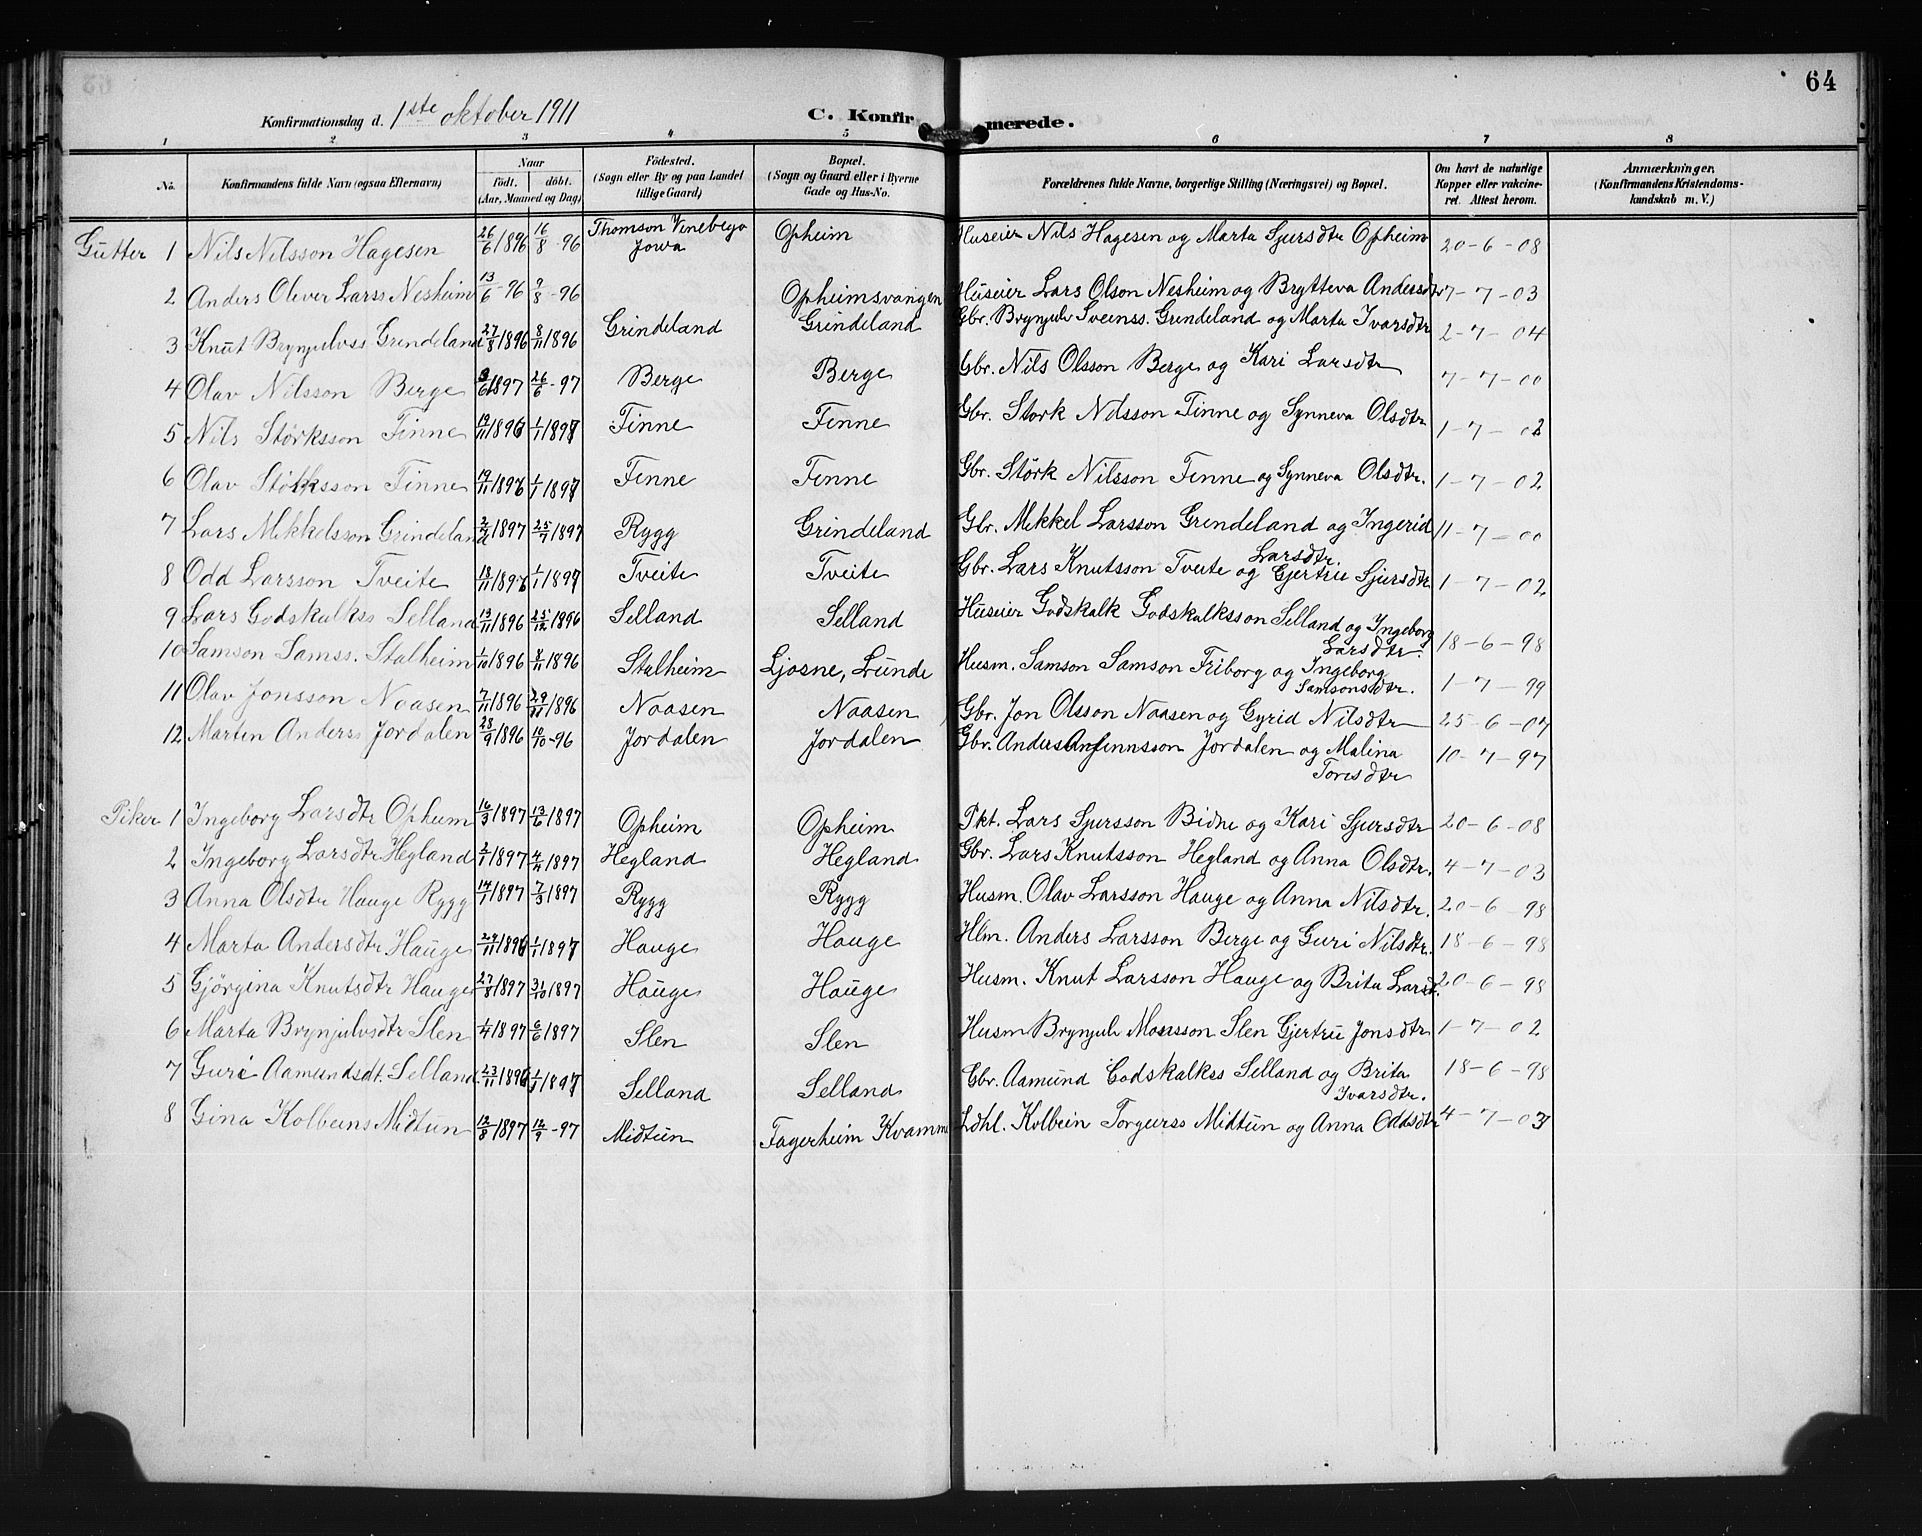 64
Konfirmationsdag d. 1ste oktober 1911 C. Konfirmerede.
1 2 3 4 5 6 7 8
No. Konfirmandens fulde Navn (ogsaa Efternavn) Naar födt. döbt. (Aar, Maaned og Dag) Födested. (Sogn eller By og paa Landet tillige Gaard) Bopæl. (Sogn og Gaard eller i Byerne Gade og Hus-No. Forældrenes fulde Navne, borgerlige Stilling (Næringsvei) og Bopæl. Om havt de naturlige Kopper eller vakcineret. Attest herom. Anmærkninger. (Konfirmandens Kristendomskundskab m. V.)
Gutter 1 Nils Nilsson Hagesen 26/6 1896 16/8 -96 Thomson Jowa Opheim Huseier Nils Hagesen og Marta Sjursdtr Opheim 20-6-08
2 Anders Oliver Larss Nesheim 13/6 -96 9/8 -96 Opheimsvangen Huseier Lars Olson Nesheim og Brytteva Andersdtr 7-7-03
3 Knut Brynjulvss Grindeland 27/8 1896 8/11 1896 Grindeland Grindeland Gbr. Brynjulv Sveinss. Grindeland og Marta Ivarsdtr 2-7-04
4 Olav Nilsson Berge 3/6 1897 26/6 -97 Berge Berge Gbr. Nils Olsson Berge og Kari Larsdtr 7-7-00
5 Nils Störksson Finne 19/11 1896 1/1 1897 Finne Finne Gbr. Störk Nilsson Finne og Synneva Olsdtr 1-7-02
6 Olav Störksson Finne 19/11 1896 1/1 1897 Finne Finne Gbr. Störk Nilsson Finne og Synneva Olsdtr. 1-7-02
7 Lars Mikkelsson Grindeland 1897 25/7 1897 Rygg Grindeland Gbr. Mikkel Larsson Grindeland og Ingerid Larsdtr. 11-7-00
8 Odd Larsson Tveite 18/11 1896 1/1 1897 Tveite Tveite Gbr. Lars Knutsson Tveite og Gjertru Sjursdtr 1-7-02
9 Lars Godskalkss Selland 13/11 1896 25/12 1896 Selland Selland Huseier Godskalk Godskalksson Selland og Ingeborg Larsdtr. 18-6-98
10 Samson Samss. Stalheim 1/10 1896 8/11 1896 Stalheim Ljosne, Lunde Husm. Samson Samson Friborg og Ingeborg Samsonsdtr. 1-7-99
11 Olav Jonsson Naasen 7/11 1896 29/11 1896 Naasen Naasen Gbr. Jon Olsson Naasen og Gyrid Nilsdtr 25-6-07
12 Martin Anderss Jordalen 28/9 1896 10/10 -96 Jordalen Jordalen Gbr. Anders Anfinnsson Jordalen og Malina Toresdtr 10-7-97
Piker 1 Ingeborg Larsdtr Opheim 16/3 1897 13/6 1897 Opheim Opheim Pkt. Lars Sjursson Bidne og Kari Sjursdtr 20-6-08
2 Ingeborg Larsdtr Hegland 2/1 1897 1897 Hegland Hegland Gbr. Lars Knutsson Hegland og Anna Olsdtr. 4-7-03
3 Anna Olsdtr Hauge Rygg 14/1 1897 7/3 1897 Rygg Rygg Husm. Olav Larsson Hauge og Anna Nilsdtr. 20-6-98
4 Marta Andersdtr Hauge 29/11 1896 1/1 1897 Hauge Hauge Hlm. Anders Larsson Berge og Guri Nilsdtr. 18-6-98
5 Gjörgina Knutsdtr Hauge 27/8 1897 31/10 1897 Hauge Hauge Husm. Knut Larsson Hauge og Brita Larsdt. 20-6-98
6 Marta Brynjulvsdtr Slen 1/4 1897 6/6 1897 Slen Slen Husm Brynjulv Monsson Slen Gjertru Jonsdtr 1-7-02
7 Guri Aamundsdt. Selland 23/11 1896 1/1 1897 Selland Selland Gbr. Aamund Godskalkss Selland og Brita Ivarsdtr. 18-6-98
8 Gina Kolbeins Midtun 12/8 1897 12/9 -97 Midtun Fagerheim Kvamme Ldhl. Kolbein Torgeirss Midtun og Anna Oddsdtr 4-7-03